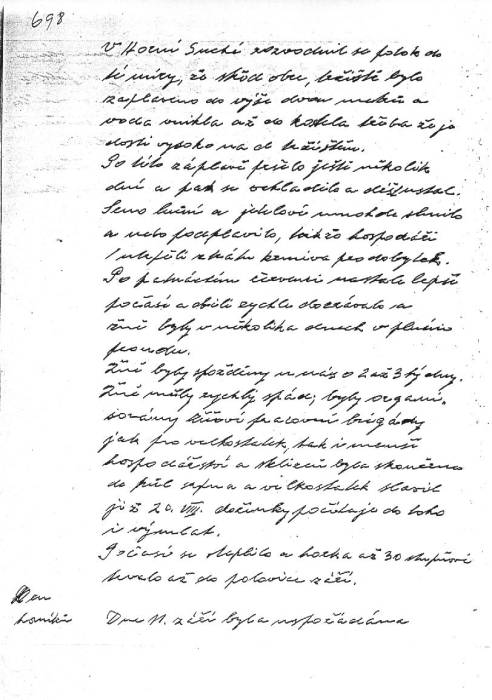 698
V Horní Suché rozvodnil se potok do
té míry, že střed obce, ležiště bylo
zaplaveno do výše dvou metrů a
voda vnikla až do kostela třeba že je
dosti vysoko nad ležištěm.
Po této záplavě pršelo ještě několik
dní a pak se ochladilo a déšť ustal.
Seno luční a jetelové mnohde shnilo
a nebo podplavilo, takže hospodáři
utrpěli ztrátu krmiva pro dobytek.
Po patnáctém červenci nastalo lepší
počasí a obilí rychle dozrávalo a
žně byly v několika dnech v plném
proudu.
Žně byly spožděny u nás o 2 až 3 týdny.
Žně měly rychlý spád; byly organi-
sovány žňové pracovní brigády
jak pro velkostatek, tak i menší
hospodářství a sklizeň byla skončena
do půl srpna a velkostatek slavil
již 20. VIII. dočinky počítaje do toho
i výmlat.
Počasí se oteplilo a horka až 30 stupňové
trvalo až do polovice září.
Den
horníků
Dne 11. září byla uspořádána